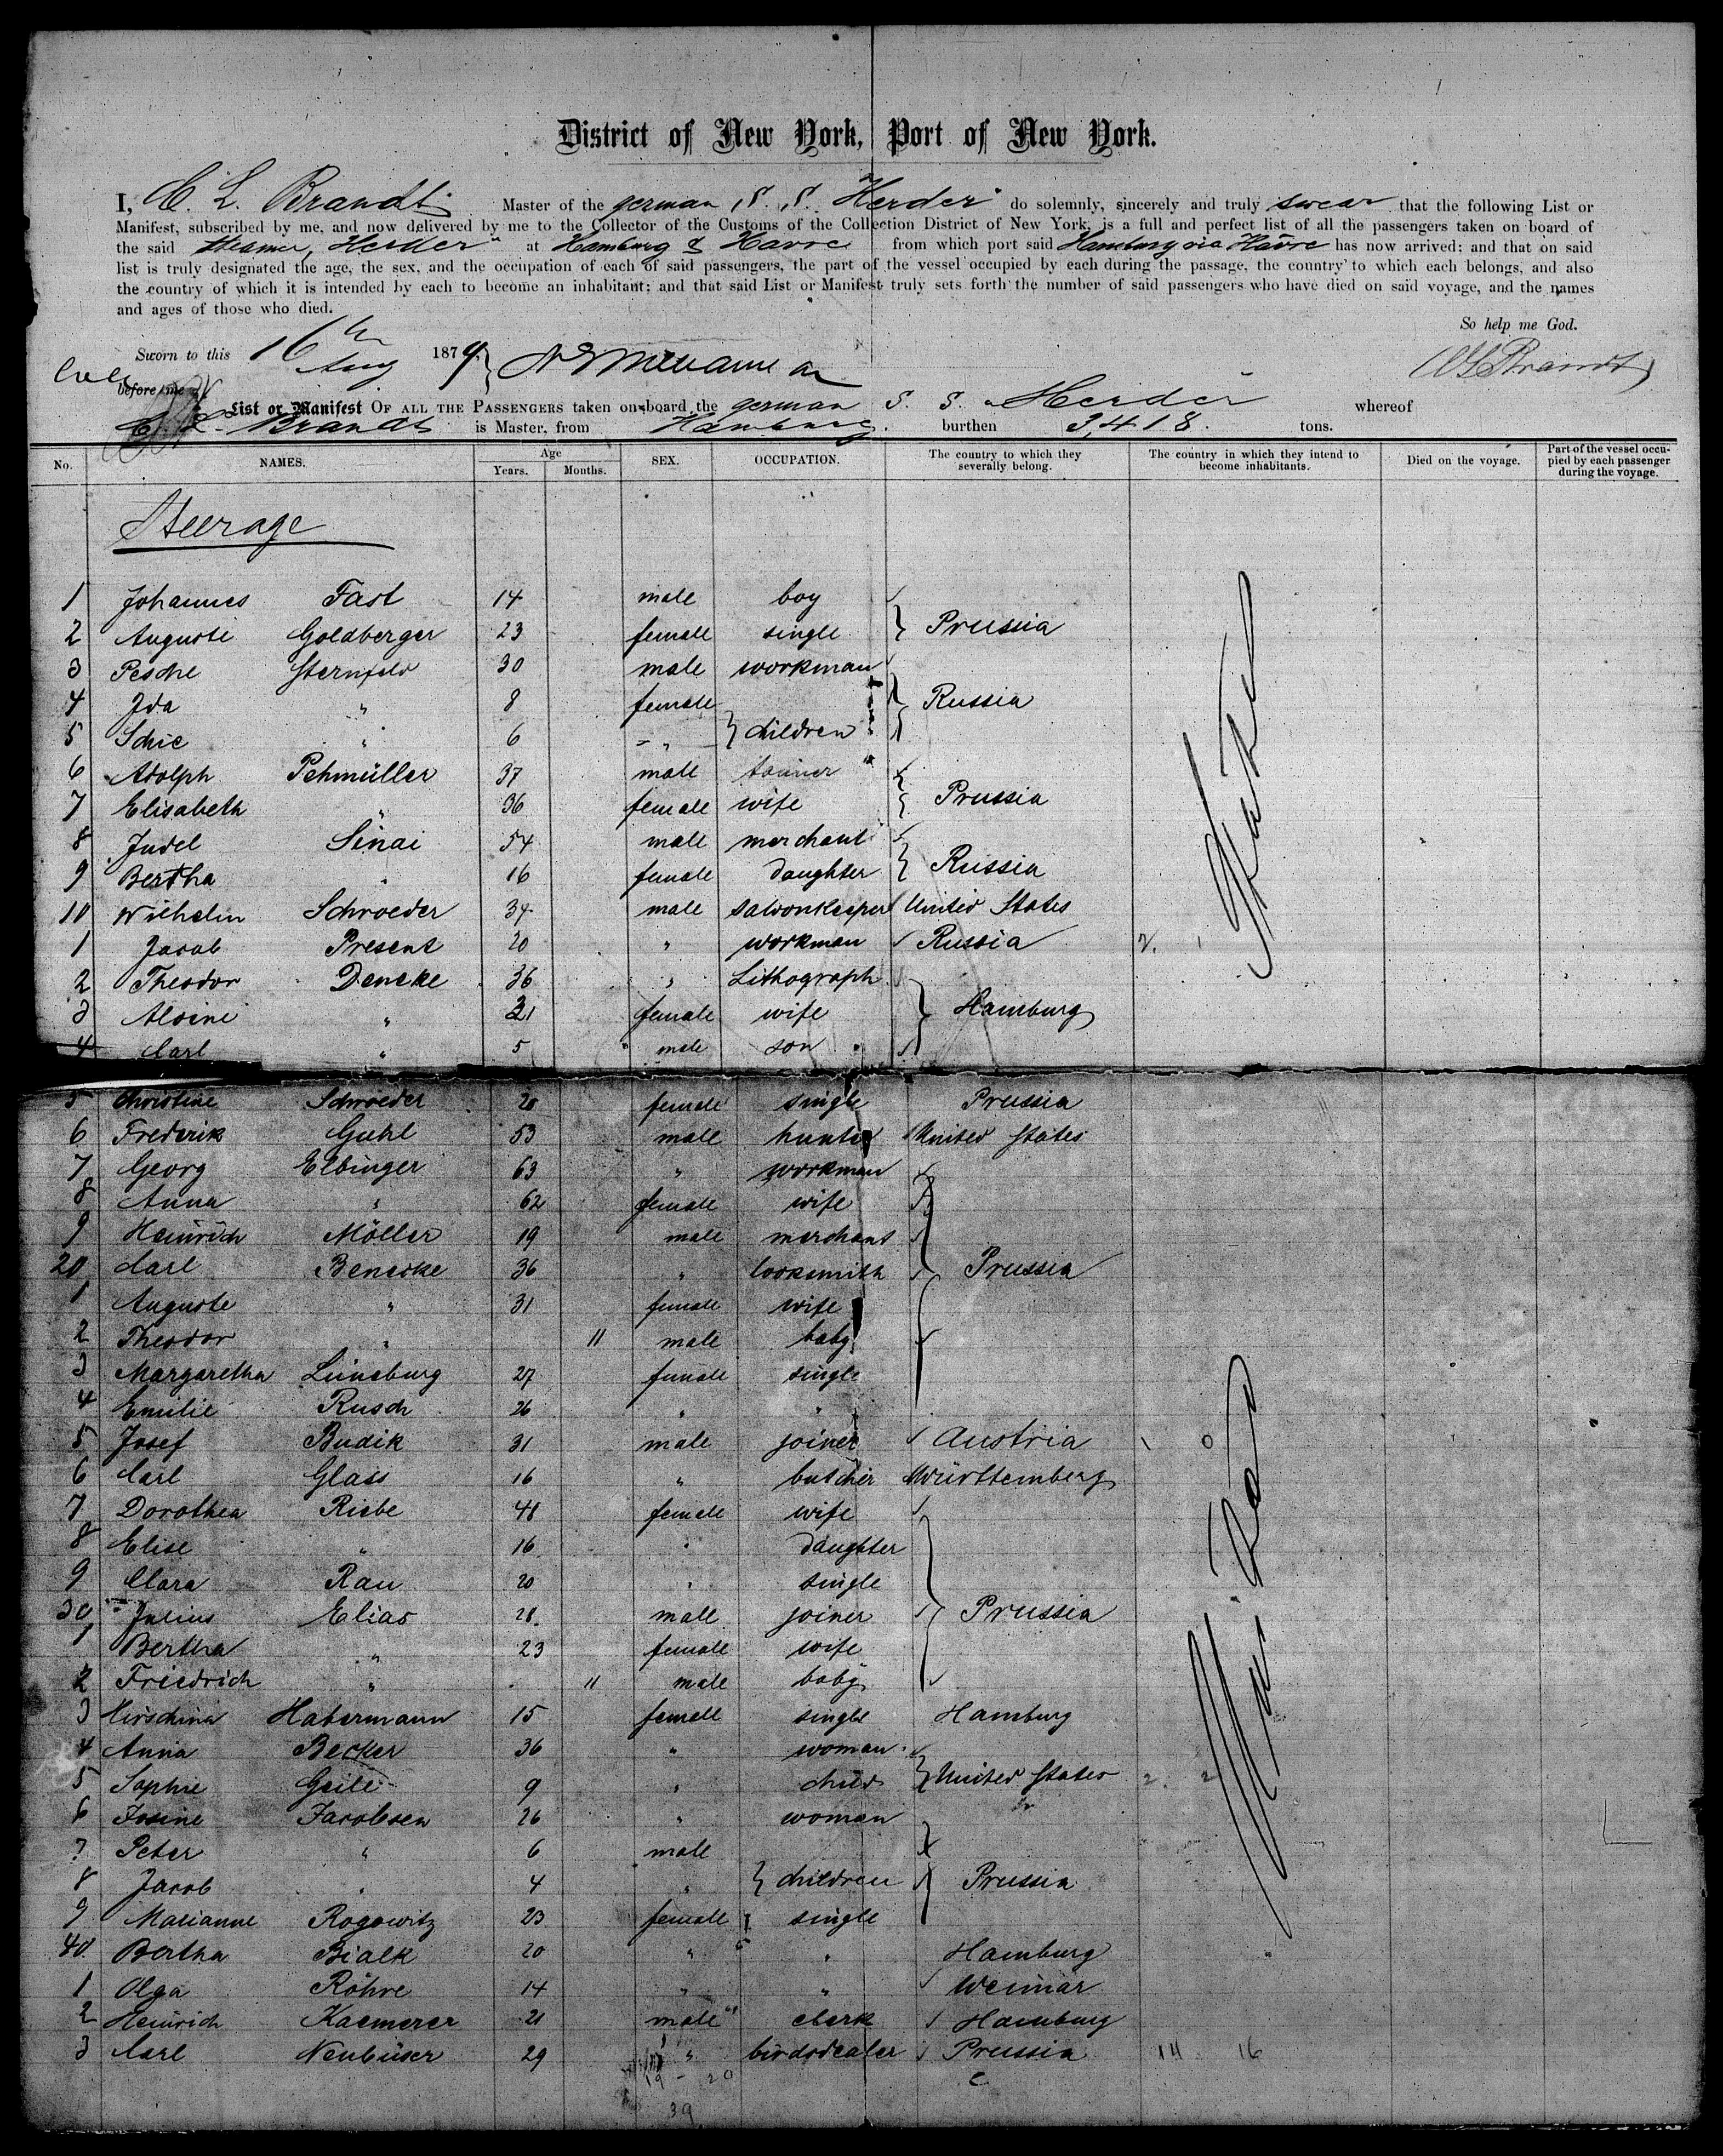 District of New York, Port of New York.
I, C. L. Brandt Master of the german S. S. Herder do solemnly, sincerely and truly swear that the following List or
Manifest, subscribed by me, and now delivered by me to the Collector of the Customs of the Collection District of New York, is a full and perfect list of all the passengers taken on board of
the said steamer, Herder" at Hamburg & Havre from which port said Hamburg via Havre has now arrived: and that on said
list is truly designated the age, the sex, and the occupation of each of said passengers, the part of the vessel occupied by each during the passage, the country to which each belongs, and also
the country of which it is intended by each to become an inhabitant: and that said List or Manifest truly sets forth the number of said passengers who have died on said voyage, and the names
and ages of those who died.
So help me God.
Sworn to this 16th Aug 1879
before me
C L Brandt
List or Manifest OF ALL THE PASSENGERS taken on board the german S. S. Herder whereof
C. L. Brandt is Master, from Hamburg. burthen 3,418. tons.
No. NAMES. Age Years. Months. SEX. OCCUPATION. The country to which they severally belong. The country in which they intend to become inhabitants. Died on the voyage. Part of the vessel occupied by each passenger during the voyage.
Steerage
1 Johannes Fast 14 male boy
2 Auguste Goldberger 23 female single } Prussia
3 Pesche Sternfeld 30 male workman
4 Ida " 8 female } Russia
5 Schie " 6 " } children
6 Adolph Pehmüller 37 male tanner
7 Elisabeth " 36 female wife } Prussia
8 Judel Sinai 54 male merchant
9 Bertha " 16 female daughter } Russia
10 Wilhelm Schroeder 34 male saloonkeeper United States
1 Jacob Present 20 " workman Russia
2 Theodor Dencke 36 " Lithograph
3 Alvine " 31 female wife } Hamburg
4 Carl " 5 male son
5 Christine Schroeder 20 female single Prussia
6 Frederik Guhl 53 male hunter United States
7 Georg Elbinger 63 " workman
8 Anna " 62 female wife
9 Heinrich Möller 19 male merchant
20 Carl Benecke 36 " locksmith Prussia
1 Auguste " 31 female wife
2 Theodor " 11 male baby
3 Margaretha Lüneburg 27 female single
4 Emilie Rusch 26 " "
5 Josef Budik 31 male joiner Austria
6 Carl Glass 16 " butcher Württemberg
7 Dorothea Riebe 48 female wife
8 Elise " 16 " daughter
9 Clara Rau 20 " single
30 Julius Elias 28 male joiner } Prussia
1 Bertha " 23 female wife
2 Friedrich " 11 male baby
3 Habermann 15 female single Hamburg
4 Anna Becker 36 " woman
5 Sophie Geile 9 " child } United States
6 Josine Jacobsen 26 " woman
7 Peter " 6 male
8 Jacob " 4 " } children Prussia
9 Marianne Rogowitz 23 female single
40 Bertha Bialk 20 " " Hamburg
1 Olga Röhre 14 " " Weimar
2 Heinrich Kaemerer 21 male clerk Hamburg
3 Carl Neubüser 29 " birdsdealer Prussia 14 16
19 - 20
39